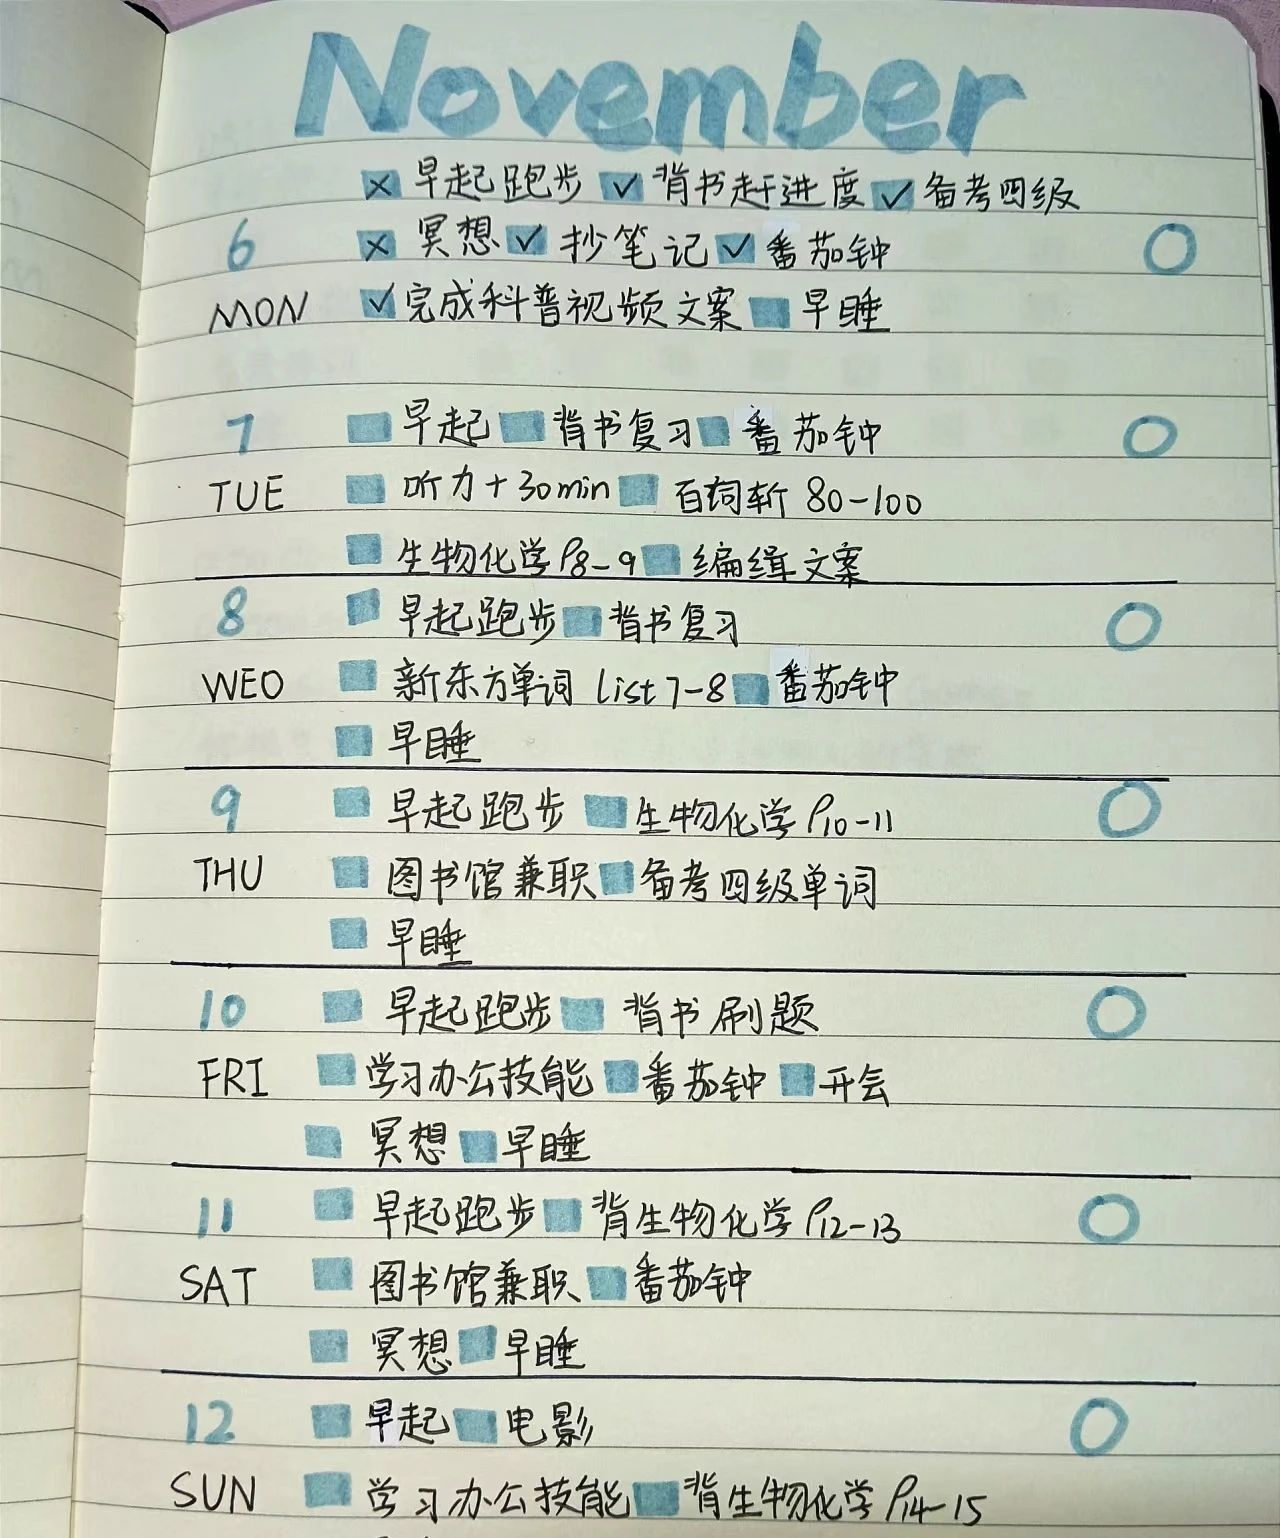 November
× 早起跑步 ✓ 背书赶进度 ✓ 备考四级
6 × 冥想 ✓ 抄笔记 ✓ 番茄钟
MON ✓ 完成科普视频文案 早睡
7 早起 背书复习 番茄钟
TUE 听力+30min 百词斩 80-100
生物化学P8-9 编缉文案
8 早起跑步 背书复习
WED 新东方单词 list7-8 番茄钟
早睡
9 早起跑步 生物化学P10-11
THU 图书馆兼职 备考四级单词
早睡
10 早起跑步 背书刷题
FRI 学习办公技能 番茄钟 开会
冥想 早睡
11 早起跑步 背生物化学P12-13
SAT 图书馆兼职 番茄钟
冥想 早睡
12 早起 电影
SUN 学习办公技能 背生物化学P14-15